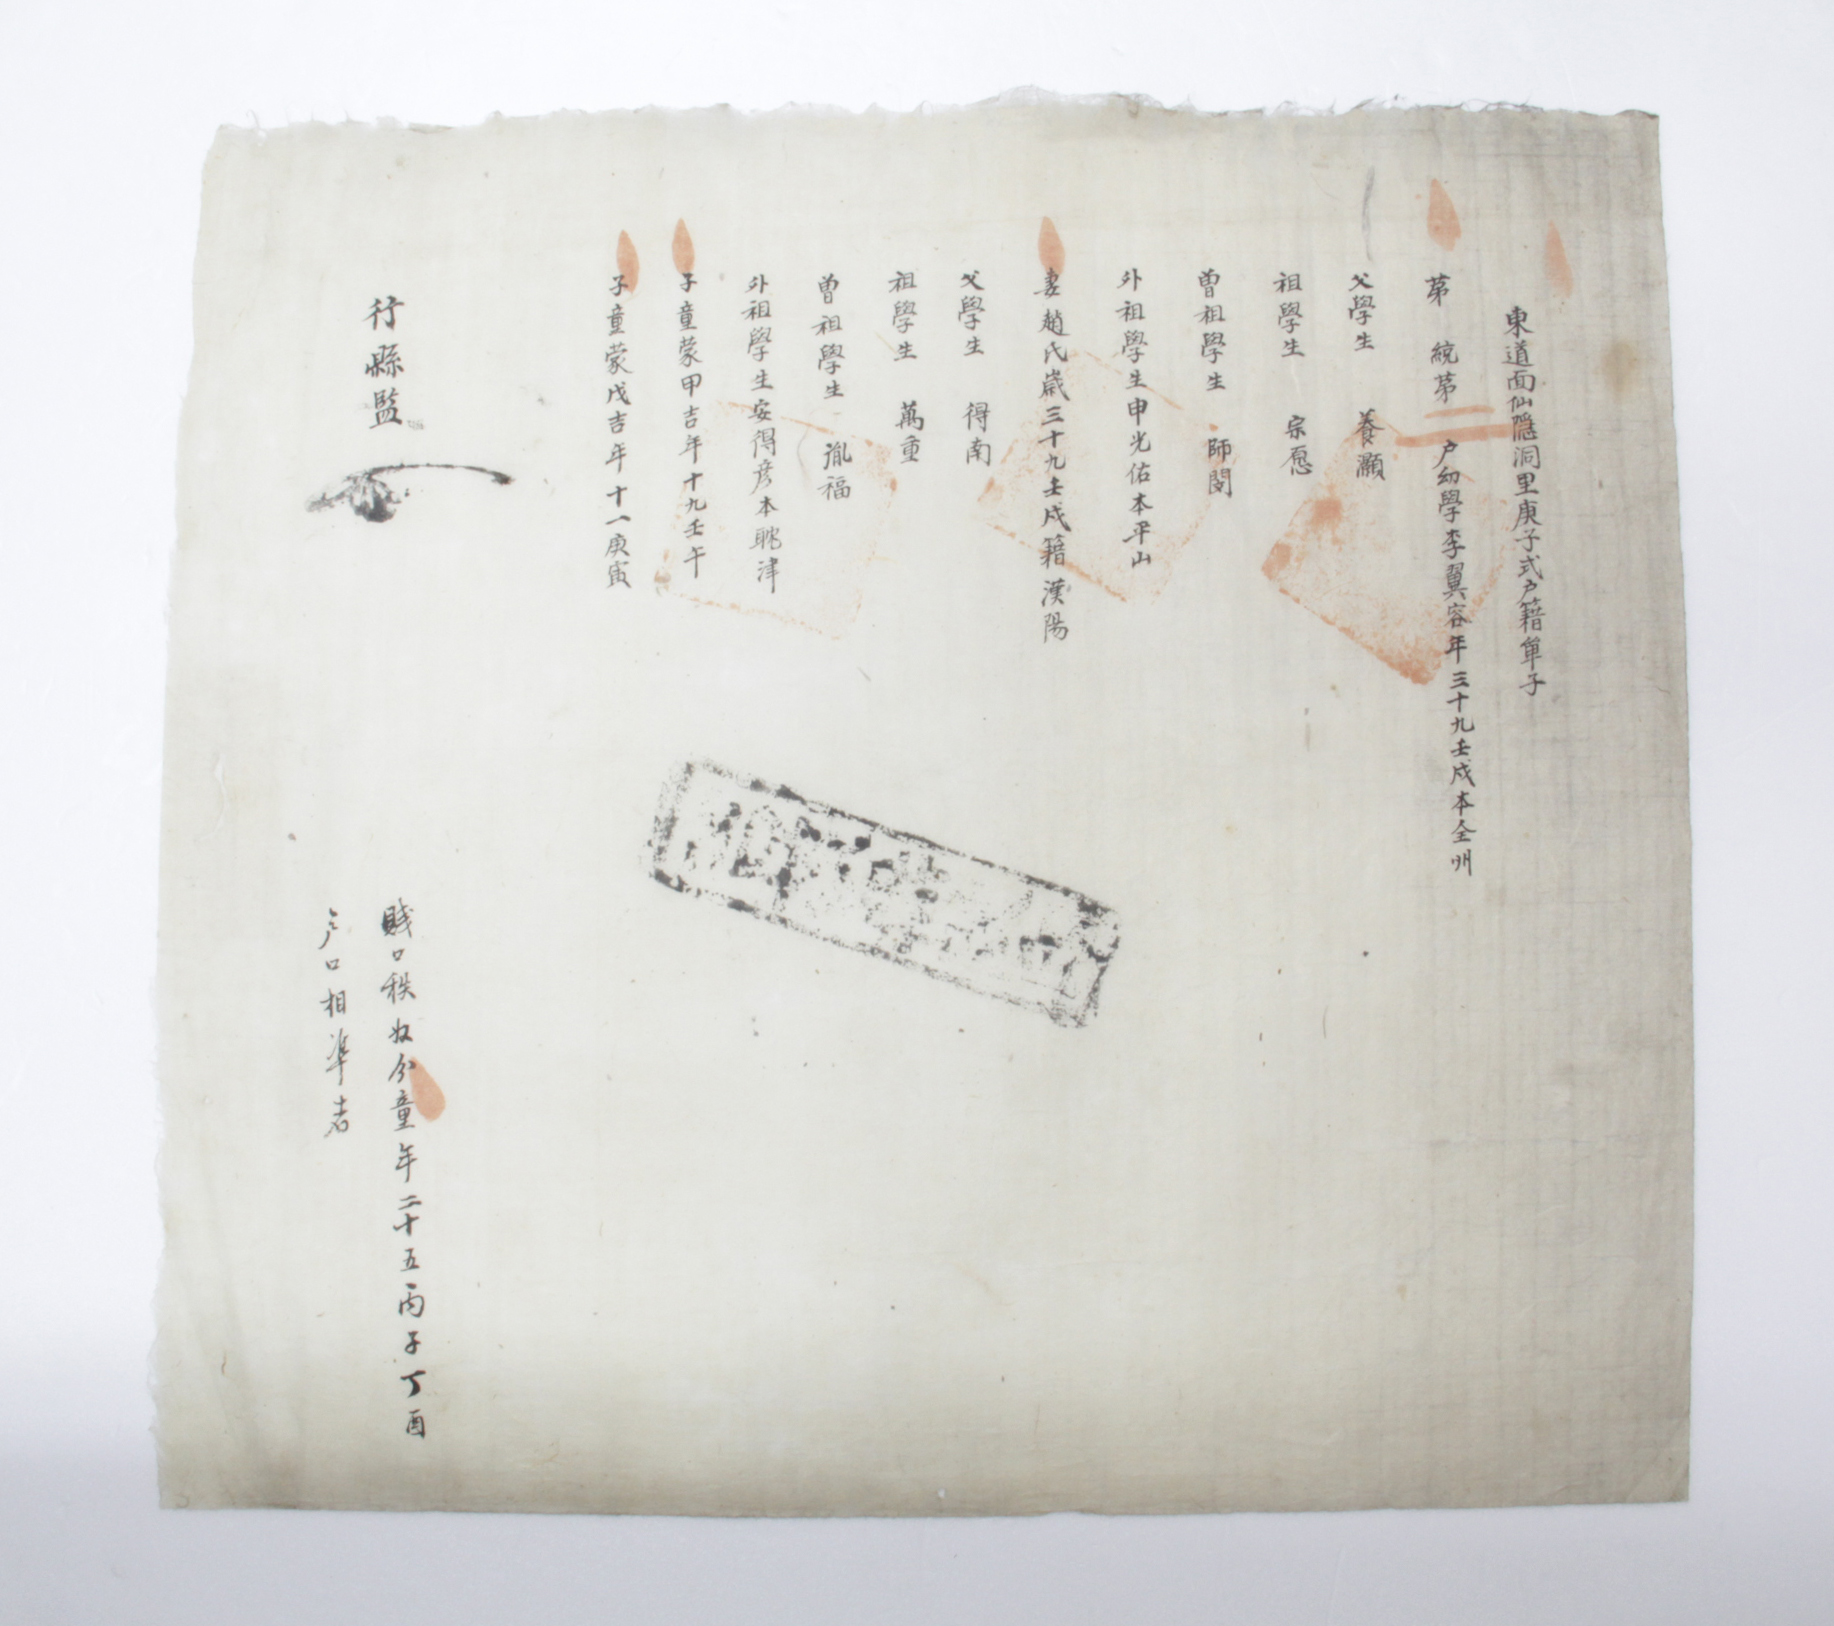 東道面仙隱洞里庚子式戶籍單子
第 統第 戶幼學李翼容年三十九壬戌本全州
父學生 養灝
祖學生 宗愿
曾祖學生 師閔
外祖學生申光佑本平山
妻趙氏歲三十九壬戌籍漢陽
父學生 得南
祖學生 萬重
曾祖學生 胤福
外祖學生安得彦本耽津
子童蒙甲吉年十九壬午
子童蒙戊吉年十一庚寅
行縣監
賤口秩奴分童年二十五丙子丁酉
戶口相準者